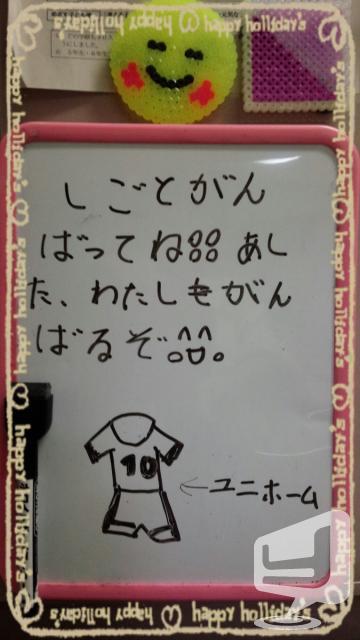 happy holliday's happy holliday's
しごとがん
ばってね あし
た、わたしもがん
ばるぞ 。
10
←ユニホーム
happy holliday's happy holliday's